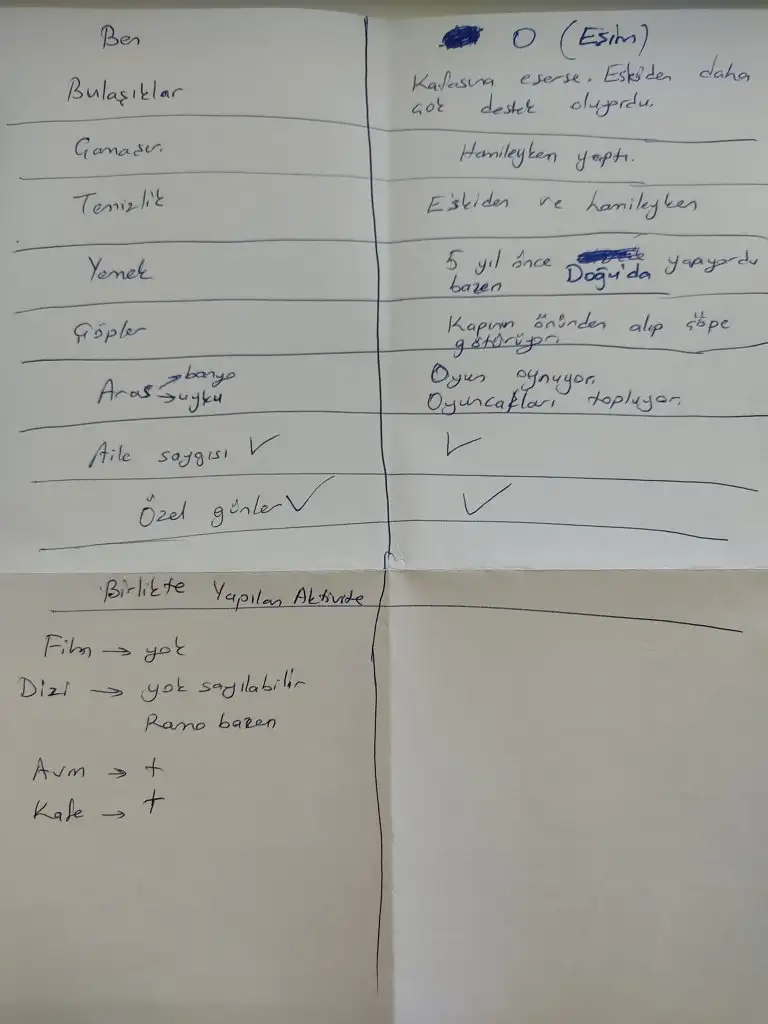 Ben
O (Eşim)
Bulaşıklar
Kafasına eserse. Eskiden daha
çok destek oluyordu.
Çamaşır.
Hamileyken yaptı.
Temizlik
Eskiden ve hamileyken
Yemek
5 yıl önce yapıyordu
bazen Doğu'da
Çöpler
Kapının önünden alıp çöpe
götürüyor.
Aras → banyo
→ uyku
Oyun oynuyor.
Oyuncakları topluyor.
Aile saygısı ✓
✓
Özel günler ✓
✓
Birlikte Yapılan Aktivite
Film → yok
Dizi → yok sayılabilir
Ramo bazen
Avm → +
Kafe → +